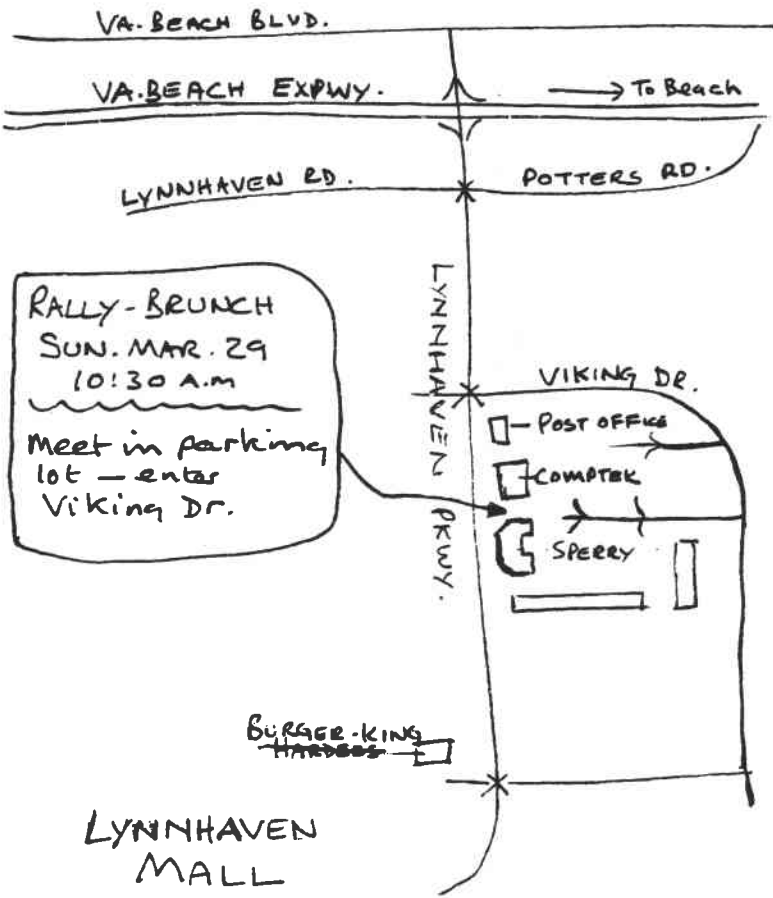 VA. BEACH BLVD.
VA. BEACH EXPWY.
To Beach
LYNNHAVEN RD.
POTTERS RD.
RALLY-BRUNCH
SUN. MAR. 29
10:30 A.M
Meet in parking
lot — enter
Viking Dr.
LYNNHAVEN PKWY.
VIKING DR.
POST OFFICE
COMPTEK
SPERRY
BURGER-KING
HARDEES
LYNNHAVEN
MALL